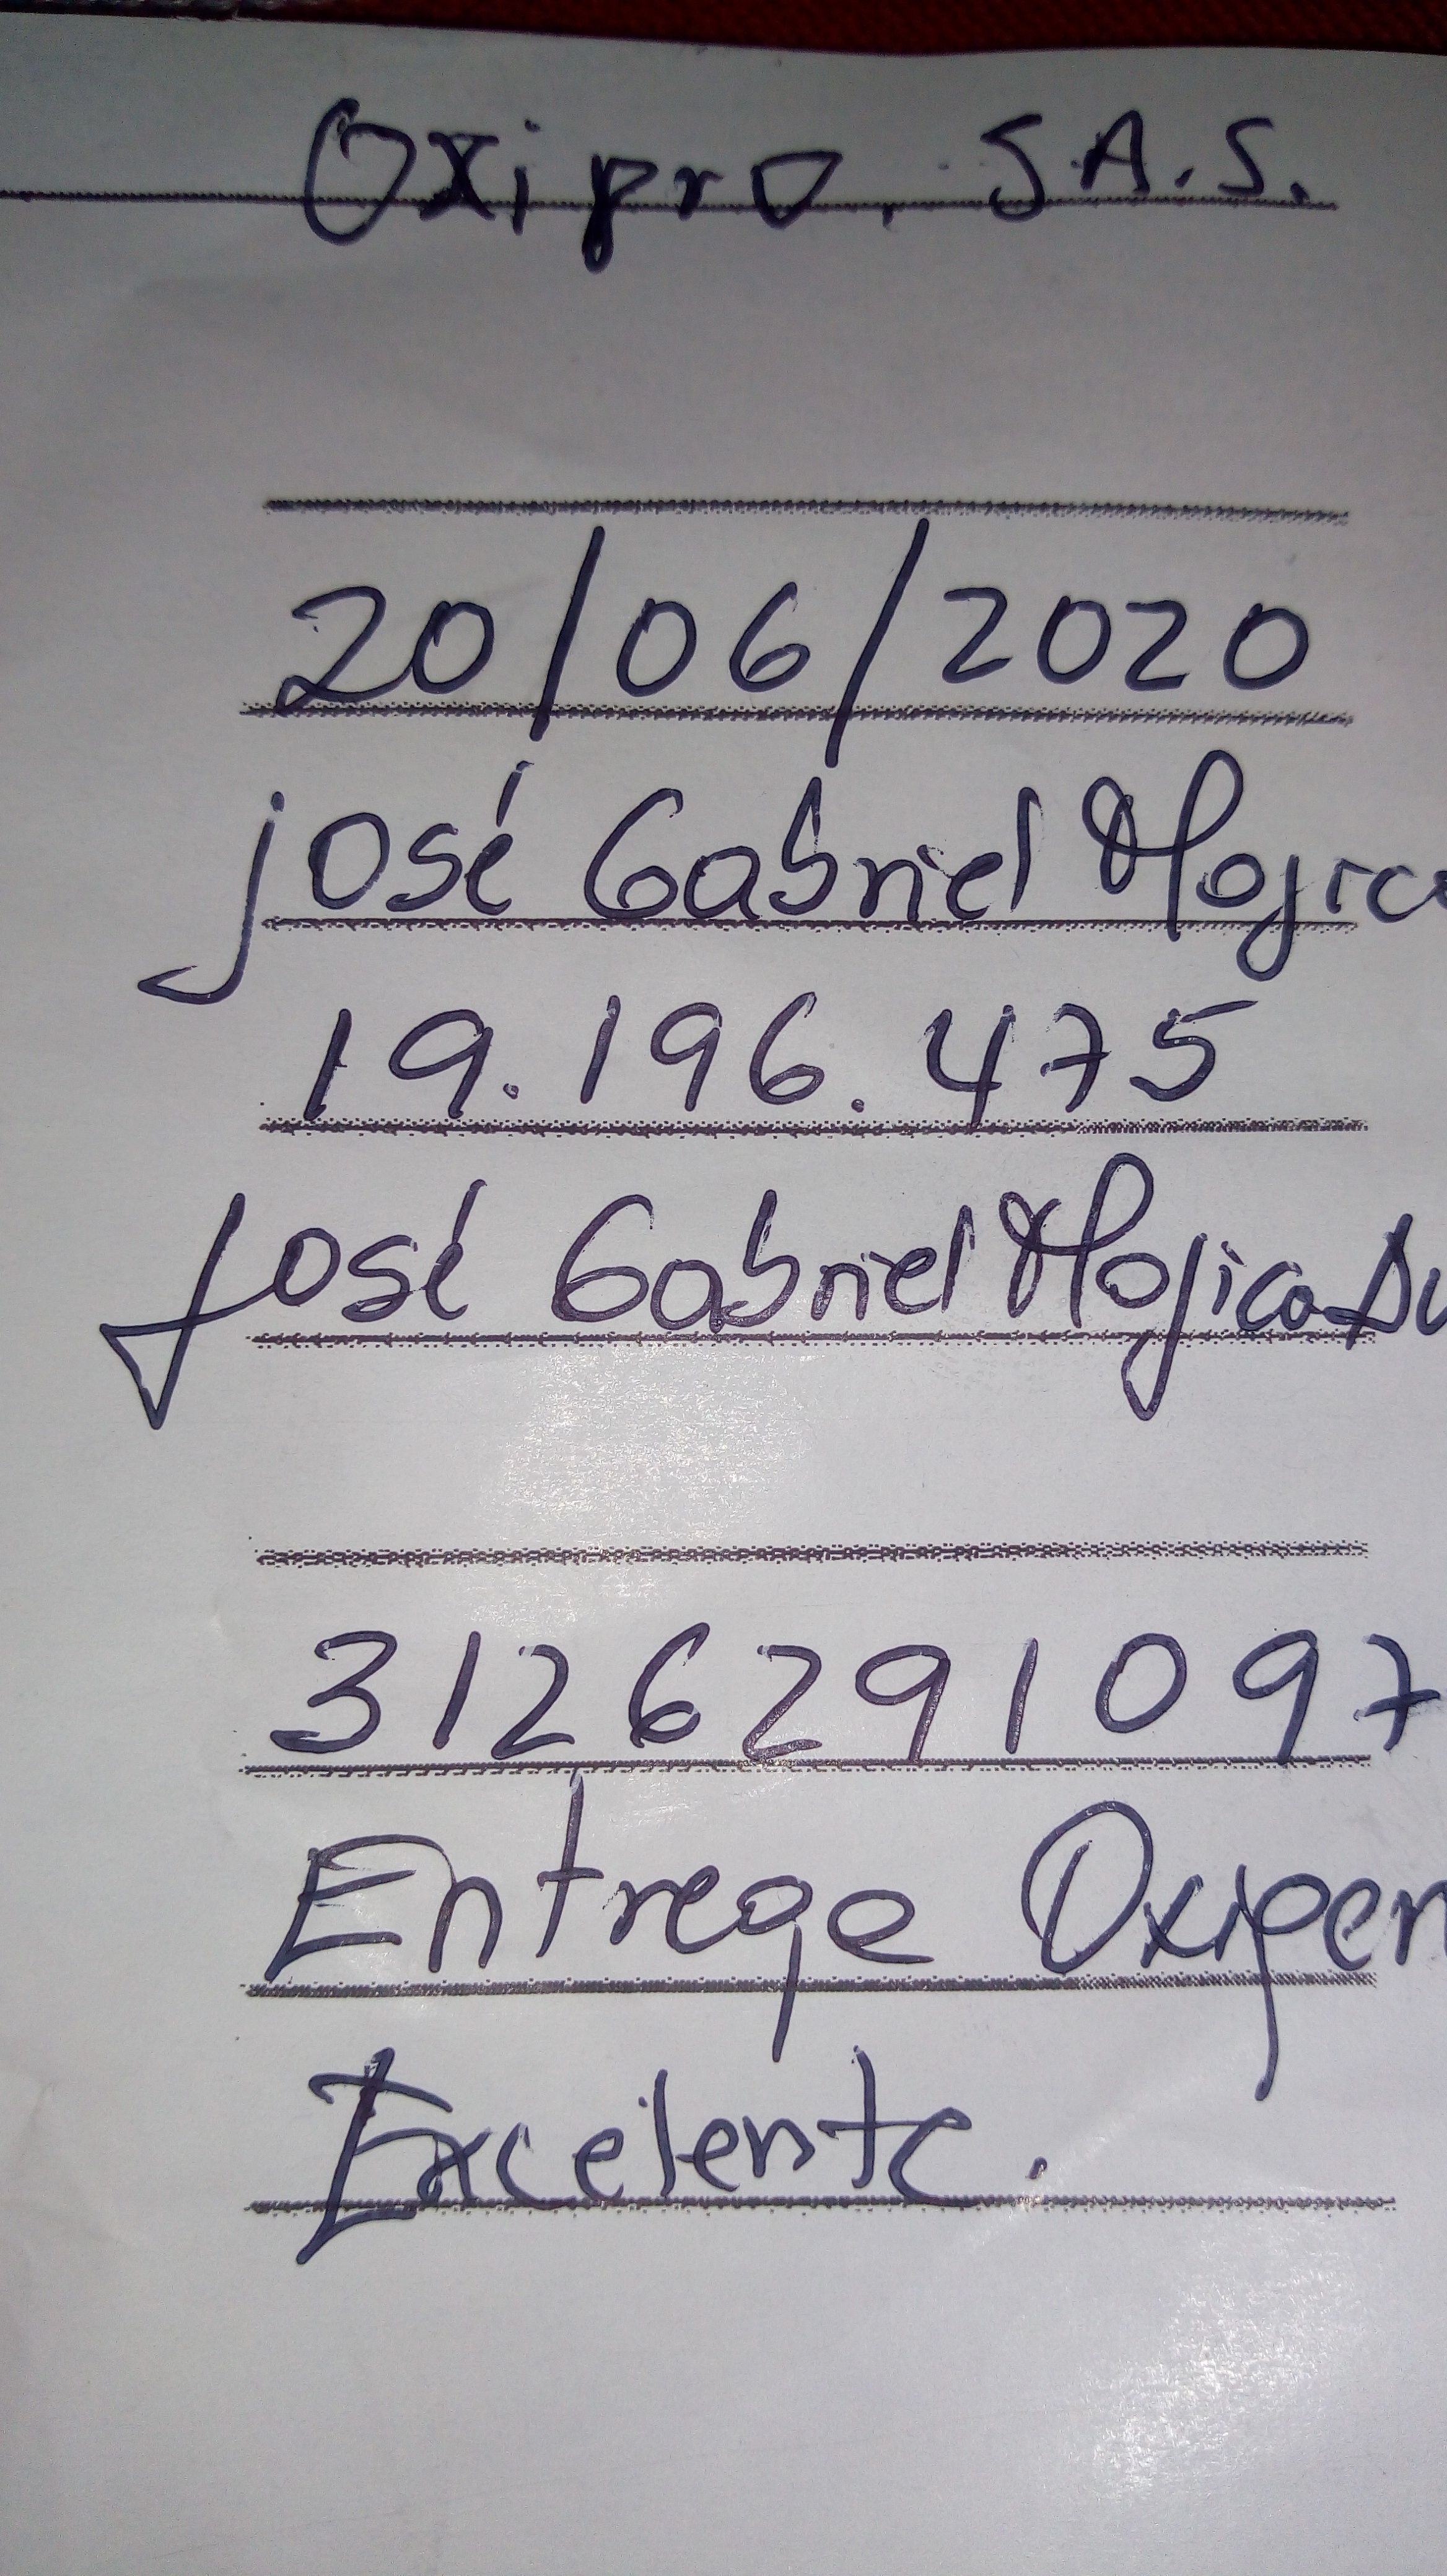 Oxipro. S.A.S.
20/06/2020
José Gabriel Mojica
19.196.475
José Gabriel Mojica Du
3126291097
Entrega Oxigen
Excelente.